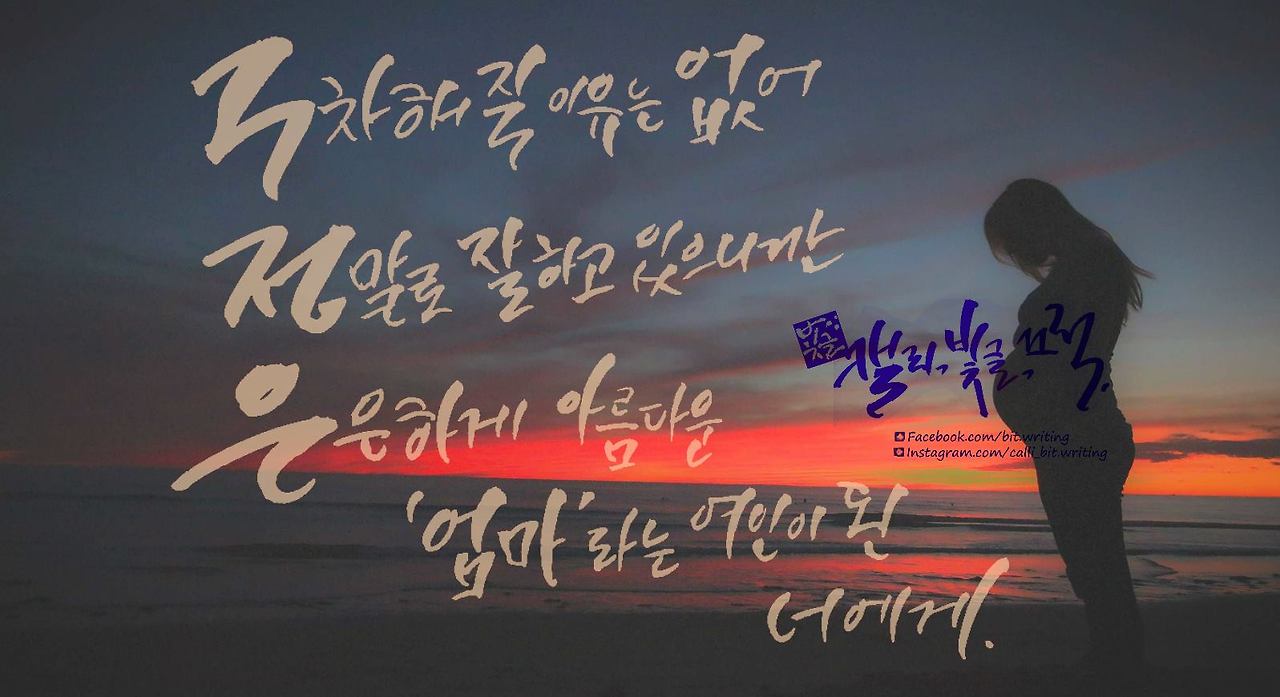 구차해질 이유는 없어
정말로 잘하고 있으니깐
은은하게 아름다운
'엄마'라는 여인이 된
너에게.
빛글
캘리, 빛글, 끄적.
Facebook.com/bit.writing
Instagram.com/calli_bit.writing